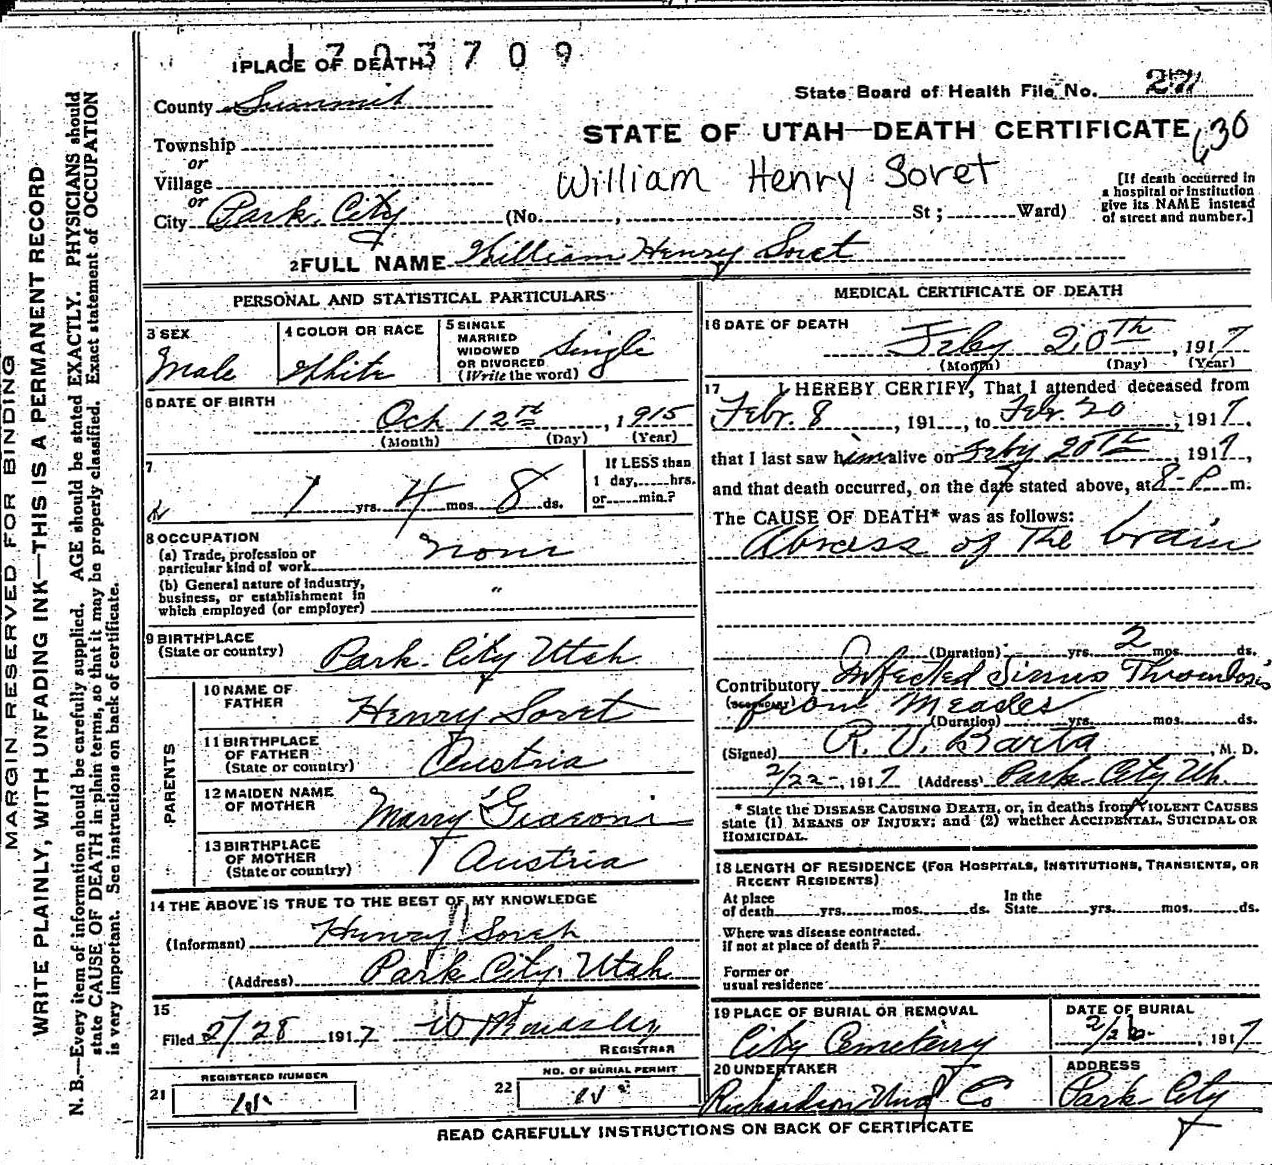 1703709
1 PLACE OF DEATH
County Summit
State Board of Health File No. 27
STATE OF UTAH—DEATH CERTIFICATE 630
Township
or
Village
or
City Park City (No. , St; Ward)
William Henry Soret
[If death occurred in
a hospital or institution
give its NAME instead
of street and number.]
2 FULL NAME William Henry Soret
PERSONAL AND STATISTICAL PARTICULARS
3 SEX
Male
4 COLOR OR RACE
White
5 SINGLE
MARRIED
WIDOWED
OR DIVORCED
(Write the word)
Single
6 DATE OF BIRTH
Oct 12th, 1915
(Month) (Day) (Year)
7
1 yrs. 4 mos. 8 ds.
If LESS than
1 day, hrs.
or min.?
8 OCCUPATION
(a) Trade, profession or
particular kind of work None
(b) General nature of industry,
business, or establishment in
which employed (or employer) "
9 BIRTHPLACE
(State or country) Park City Utah
PARENTS
10 NAME OF
FATHER Henry Soret
11 BIRTHPLACE
OF FATHER
(State or country) Austria
12 MAIDEN NAME
OF MOTHER Marry Giaconi
13 BIRTHPLACE
OF MOTHER
(State or country) Austria
14 THE ABOVE IS TRUE TO THE BEST OF MY KNOWLEDGE
(Informant) Henry Soret
(Address) Park City, Utah
15
Filed 2/28 1917
REGISTRAR
REGISTERED NUMBER
21
NO. OF BURIAL PERMIT
22
MEDICAL CERTIFICATE OF DEATH
16 DATE OF DEATH
Feby 20th, 1917
(Month) (Day) (Year)
17 I HEREBY CERTIFY, That I attended deceased from
Febr. 8, 191 , to Febr. 20, 1917,
that I last saw him alive on Feby 20th, 1917,
and that death occurred, on the date stated above, at 8-P m.
The CAUSE OF DEATH* was as follows:
Abscess of the brain
(Duration) yrs. 2 mos. ds.
Contributory Infected Sinus Thrombosis
(SECONDARY) from Measles
(Duration) yrs. mos. ds.
(Signed) R. V. Barta, M. D.
2/22-, 1917 (Address) Park City Ut.
* State the DISEASE CAUSING DEATH, or, in deaths from VIOLENT CAUSES
state (1) MEANS OF INJURY; and (2) whether ACCIDENTAL, SUICIDAL OR
HOMICIDAL.
18 LENGTH OF RESIDENCE (FOR HOSPITALS, INSTITUTIONS, TRANSIENTS, OR
RECENT RESIDENTS)
At place
of death yrs. mos. ds.
In the
State yrs. mos. ds.
Where was disease contracted.
if not at place of death?
Former or
usual residence
19 PLACE OF BURIAL OR REMOVAL
City Cemetery
DATE OF BURIAL
1917
20 UNDERTAKER
Richardson Und Co
ADDRESS
Park City
READ CAREFULLY INSTRUCTIONS ON BACK OF CERTIFICATE
MARGIN RESERVED FOR BINDING
WRITE PLAINLY, WITH UNFADING INK—THIS IS A PERMANENT RECORD
N. B.—Every item of information should be carefully supplied. AGE should be stated EXACTLY. PHYSICIANS should
state CAUSE OF DEATH in plain terms, so that it may be properly classified. Exact statement of OCCUPATION
is very important. See instructions on back of certificate.